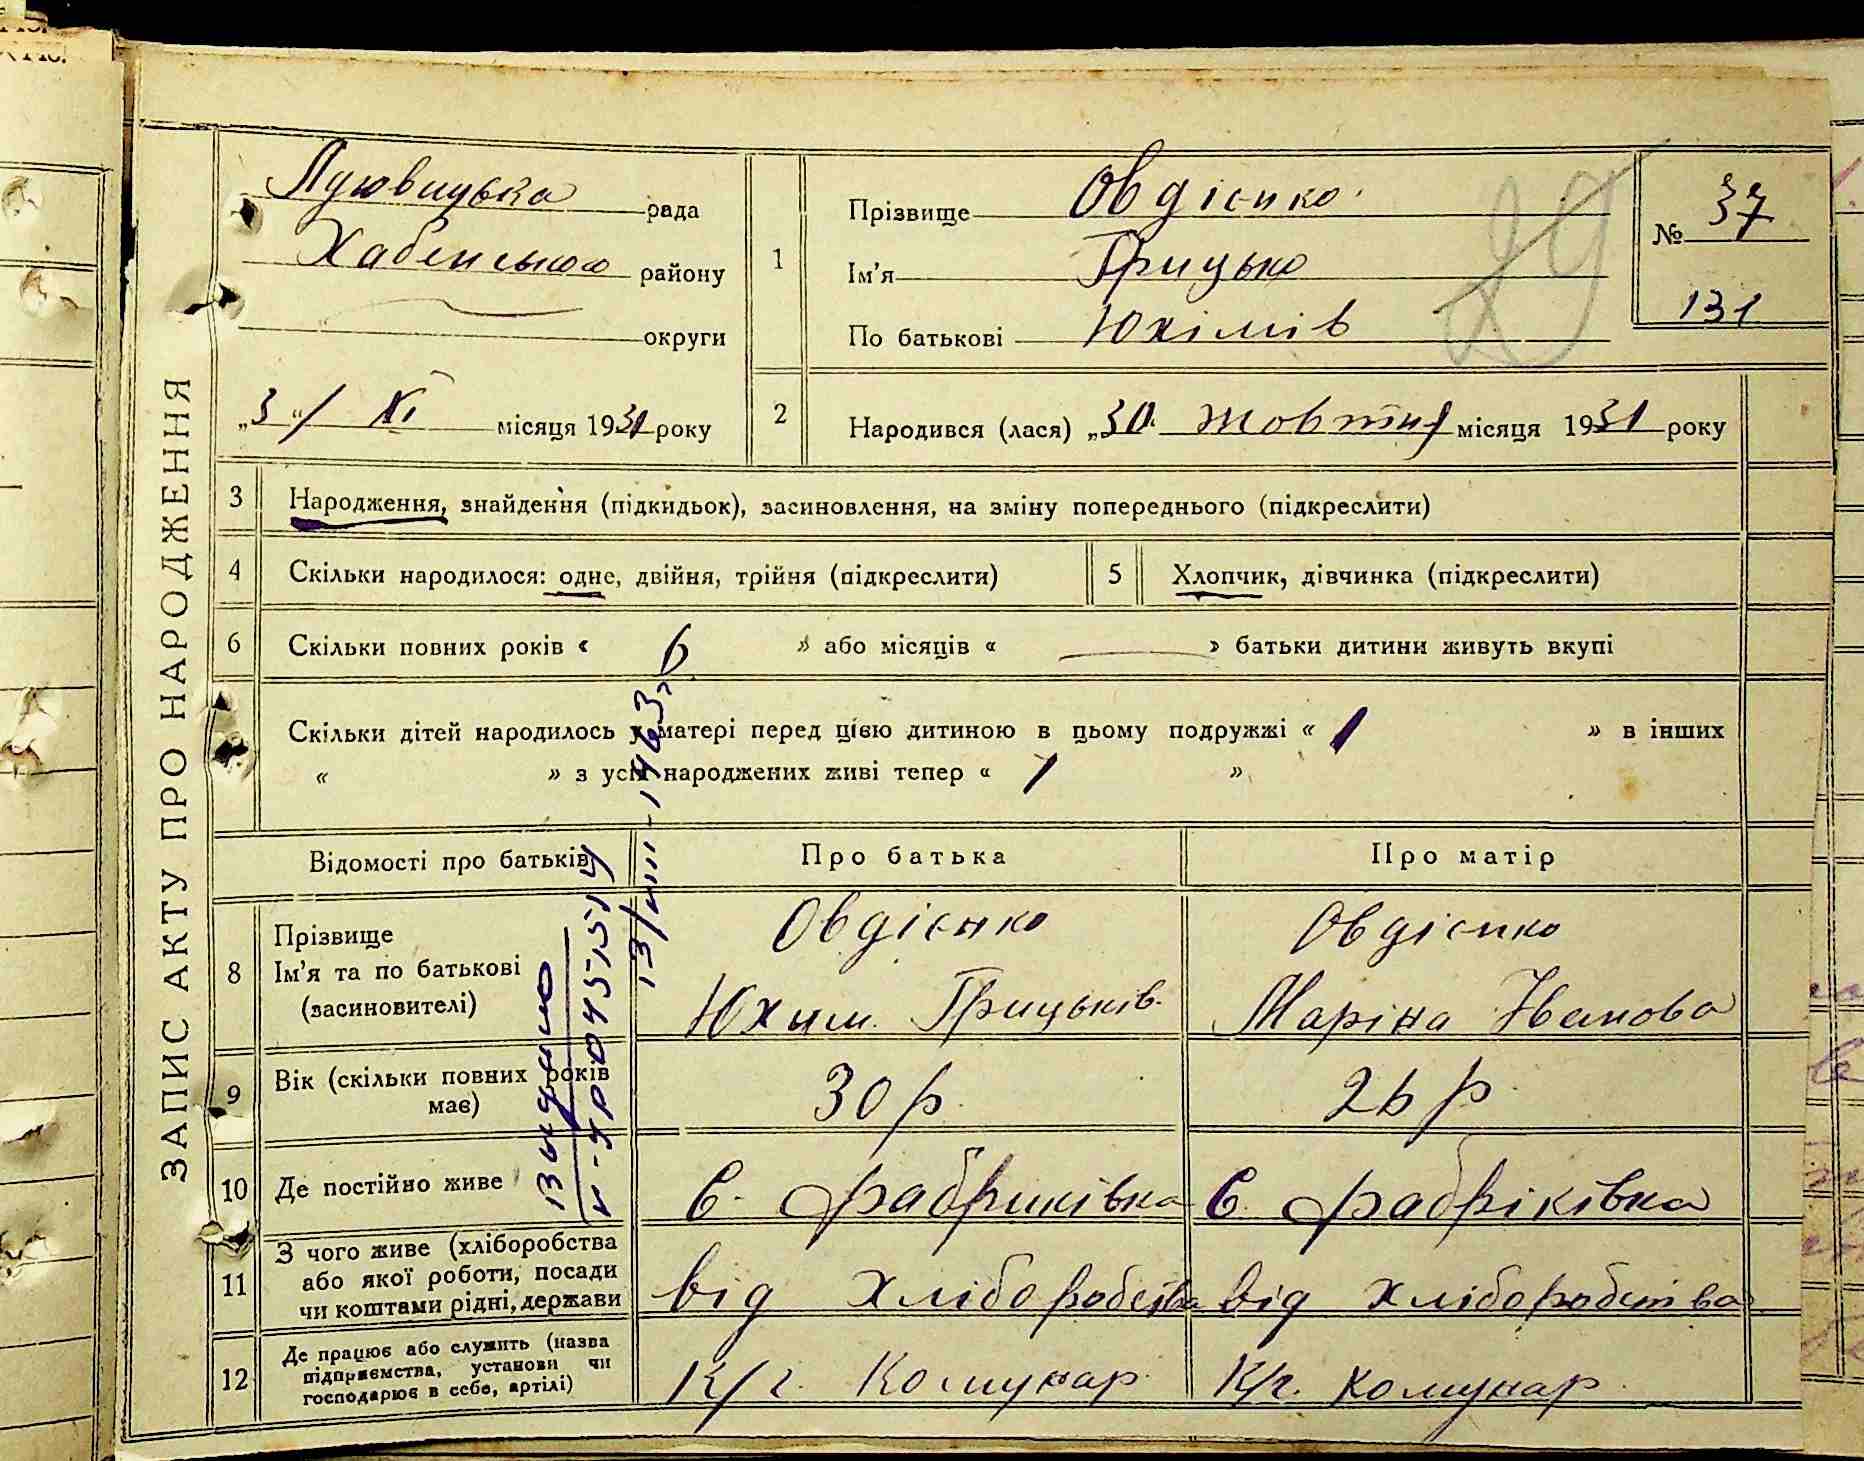 ЗАПИС АКТУ ПРО НАРОДЖЕННЯ
Луговицька рада
Хабенського району
округи
„3“/ XI місяця 1931 року
1
Прізвище Овдієнко
Ім'я Грицько
По батькові Юхімів
29
№ 37
131
2 Народився (лася) „30. жовтня місяця 1931 року
3 Народження, знайдення (підкидьок), засиновлення, на зміну попереднього (підкреслити)
4 Скільки народилося: одне, двійня, трійня (підкреслити)
5 Хлопчик, дівчинка (підкреслити)
6 Скільки повних років « 6 » або місяців « — » батьки дитини живуть вкупі
Скільки дітей народилось у матері перед цією дитиною в цьому подружжі « 1 » в інших
« » з усіх народжених живі тепер « 1 »
Відомості про батьків Про батька Про матір
8 Прізвище
Ім'я та по батькові
(засиновителі)
Овдієнко
Юхим Грицьків
Овдієнко
Маріна Іванова
9 Вік (скільки повних років
має)
30 р. 26 р.
10 Де постійно живе С. Фабриківка С. Фабріківка
11 З чого живе (хліборобства
або якої роботи, посади
чи коштами рідні, держави
від хліборобства від хліборобства
12 Де працює або служить (назва
підприємства, установи чи
господарює в себе, артілі)
К/г. Комунар К/г. Комунар
Выдано
13/VIII-1963 г.